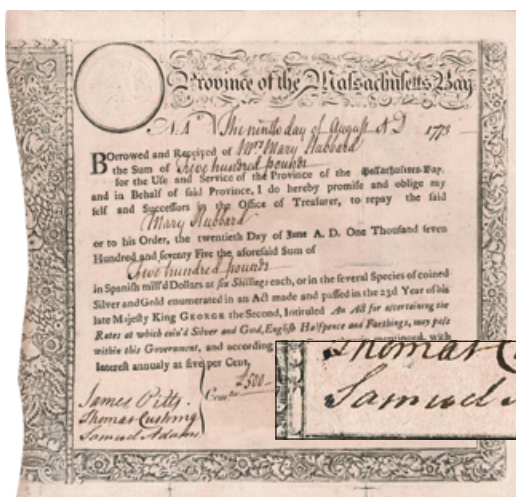 Province of the Massachusetts Bay
The ninth day of August A D 1773
Borrowed and Received of Mrs Mary Hubbard
the Sum of five hundred pounds
for the Use and Service of the Province of the Massachusetts-Bay.
and in Behalf of said Province, I do hereby promise and oblige my
self and Successors in the Office of Treasurer, to repay the said
Mary Hubbard
or to his Order, the twentieth Day of June A. D. One Thousand seven
Hundred and seventy Five the aforesaid Sum of
five hundred pounds
in Spanish mill'd Dollars at six Shillings each, or in the several Species of coined
Silver and Gold enumerated in an Act made and passed in the 23d Year of his
late Majesty King GEORGE the Second, Intituled An Act for ascertaining the
Rates at which coin'd Silver and Gold, English Halfpence and Farthings, may pass
within this Government, and according mentioned, with
Interest annually at five per Cent.
£500
James Pitts
Thomas Cushing
Samuel Adams
Comtee
Thomas
Samuel